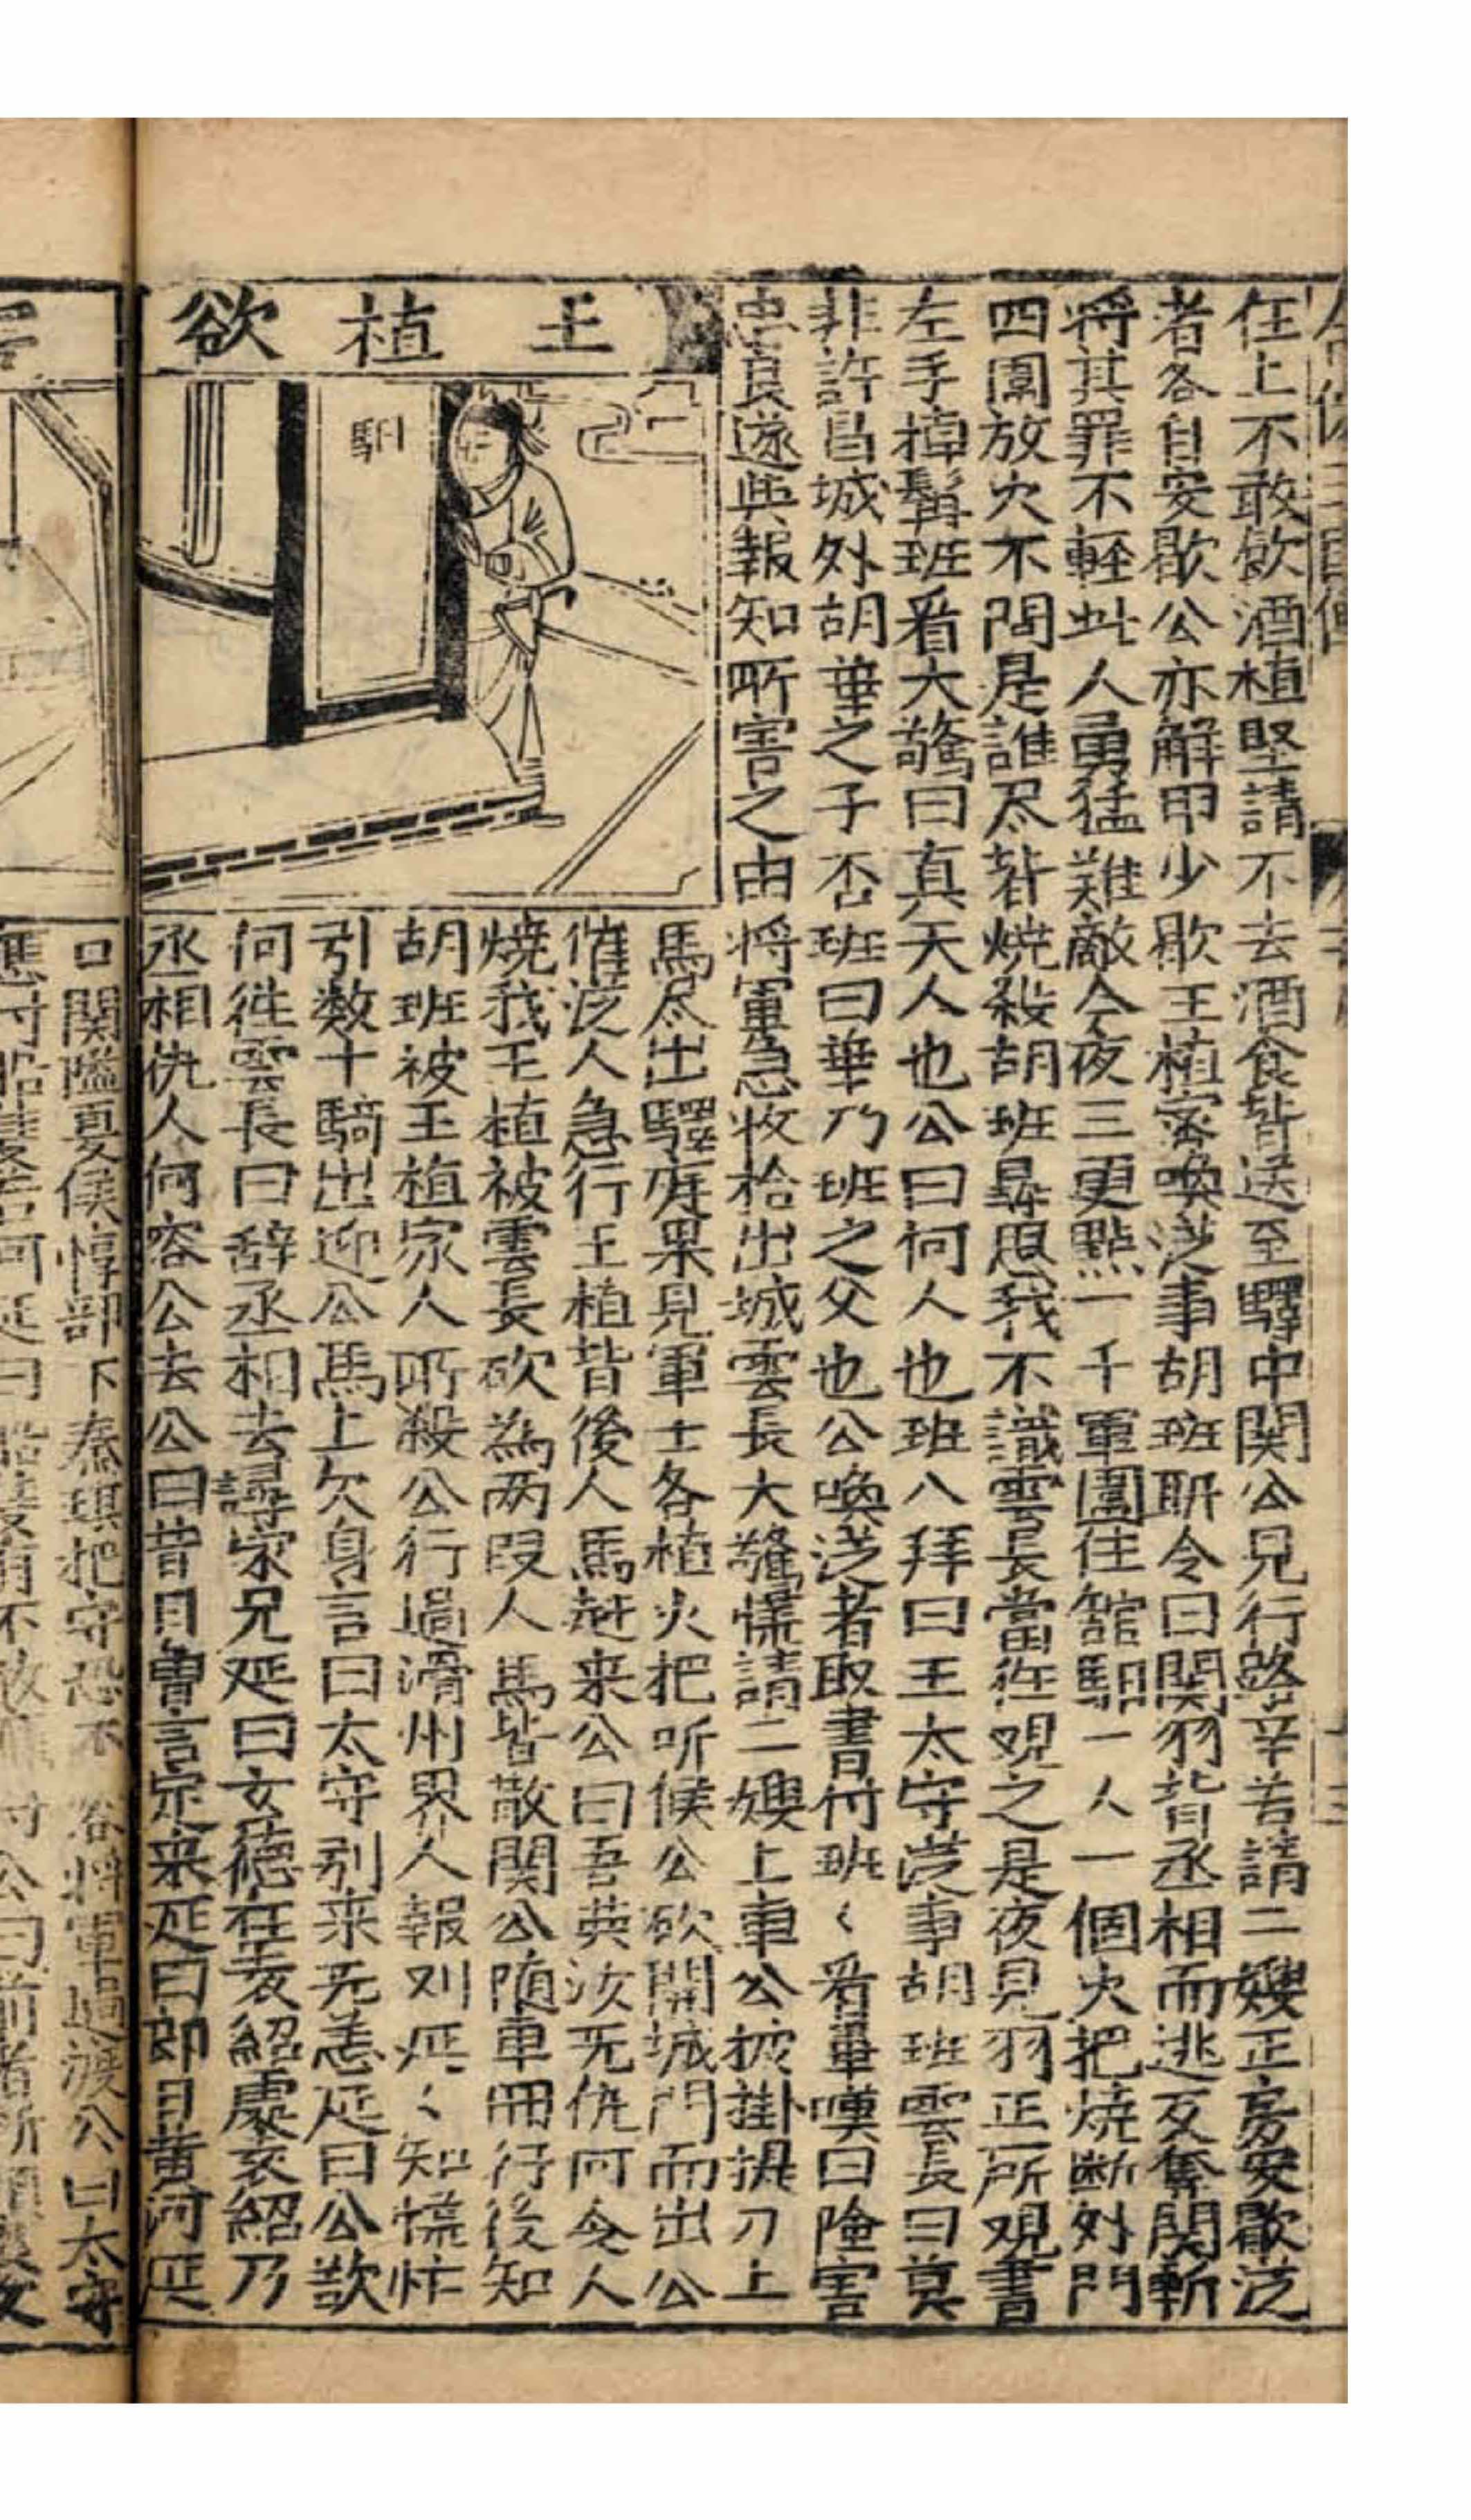 任上不敢飲酒植堅請不去酒食皆送至驛中関公見行路辛苦請二嫂正房安歇从
者各自安歇公亦解甲少歇王植密喚从事胡班聽令曰関羽背丞相而逃又奪関斬
將其罪不輕此人勇猛難敵今夜三更點一千軍圍住舘馹一人一個火把燒断外門
四圍放火不問是誰尽着燒殺胡班尋思我不識雲長當往覌之是夜見羽正所覌書
左手掉髯班看大驚曰真天人也公曰何人也班八拜曰王太守从事胡班雲長曰莫
非許昌城外胡華之子否班曰華乃班之父也公喚从者取書付班〻看畢嘆曰險害
忠良遂與報知所害之由將軍急收拾出城雲長大驚慌請二嫂上車公披掛提刀上
馬尽出驛庭果見軍士各植火把听候公砍開城門而出公
催从人急行王植背後人馬赶来公曰吾與汝无仇何令人
燒我王植被雲長砍為两段人馬皆散関公随車冊行後知
胡班被王植家人所殺公行過滑州界人報刘延〻知慌忙
引数十騎出迎公馬上欠身言曰太守别来无恙延曰公欲
何徃雲長曰辞丞相去尋家兄延曰玄德在袁紹處袁紹乃
丞相仇人何容公去公曰昔日曾言定来延曰即目黄河延
王植欲
馹
口関隘夏侯惇部下秦琪把守恐不容將軍過渡公曰太守